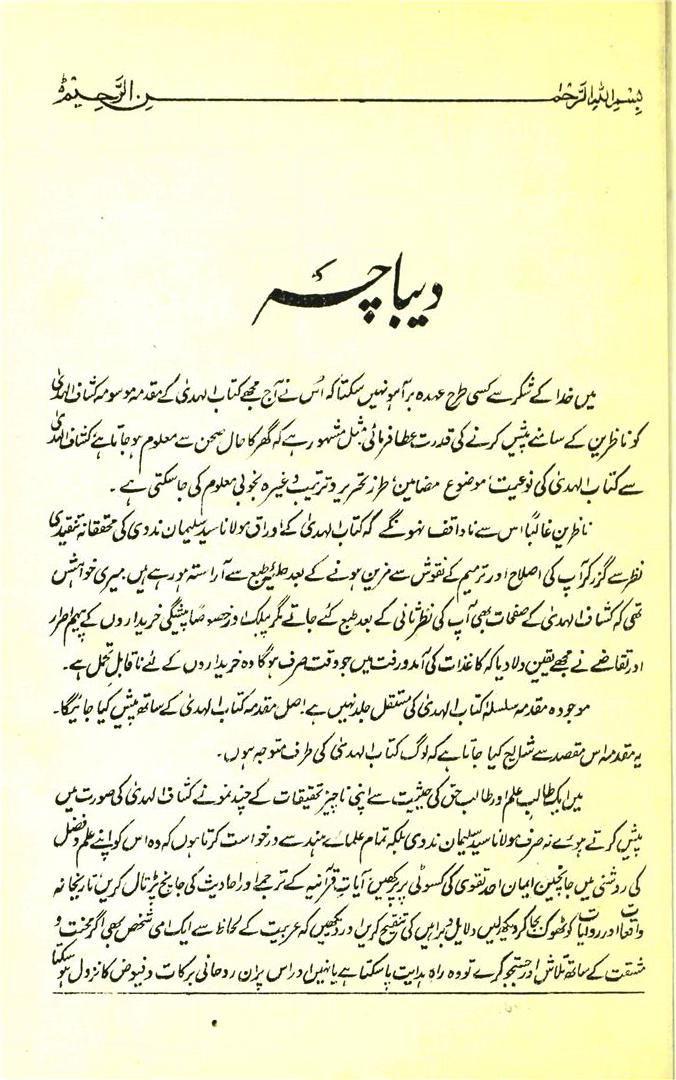 بِسْمِ اللّٰهِ الرَّحْمٰنِ الرَّحِيْمِ
دیباچہ
میں خدا کے شکر سے کسی طرح عہدہ برآ ہو نہیں سکتا کہ اُس نے آج مجھے کتاب الہدیٰ کے مقدمہ موسومہ کشاف الہدیٰ
کو ناظرین کے سامنے پیش کرنے کی قدرت عطا فرمائی مثل مشہور ہے کہ گھر کا حال صحن سے معلوم ہو جاتا ہے کشاف الہدیٰ
سے کتاب الہدیٰ کی نوعیت، موضوع مضامین، طرز تحریر و ترتیب وغیرہ بخوبی معلوم کی جا سکتی ہے۔
ناظرین غالباً اس سے ناواقف نہونگے کہ کتاب الہدیٰ کے اوراق مولانا سید سلیمان ندوی کی محققانہ تنقیدی
نظر سے گزر کر آپ کی اصلاح اور ترمیم کے نقوش سے مزین ہونے کے بعد حلیۂ طبع سے آراستہ ہو رہے ہیں۔ میری خواہش
تھی کہ کشاف الہدیٰ کے صفحات بھی آپ کی نظر ثانی کے بعد طبع کئے جاتے مگر پبلک اور خصوصاً پیشگی خریداروں کے پیہم اصرار
اور تقاضے نے مجھے یقین دلا دیا کہ کاغذات کی آمد ورفت میں جو وقت صرف ہوگا وہ خریداروں کے لئے ناقابل تحمل ہے۔
موجودہ مقدمہ سلسلۂ کتاب الہدیٰ کی مستقل جلد نہیں ہے اصل مقدمہ کتاب الہدیٰ کے ساتھ پیش کیا جائیگا۔
یہ مقدمہ اس مقصد سے شایع کیا جاتا ہے کہ لوگ کتاب الہدیٰ کی طرف متوجہ ہوں۔
میں ایک طالب علم اور طالب حق کی حیثیت سے اپنی ناچیز تحقیقات کے چند نمونے کشاف الہدیٰ کی صورت میں
پیش کرتے ہوئے نہ صرف مولانا سید سلیمان ندوی بلکہ تمام علمائے ہند سے درخواست کرتا ہوں کہ وہ اس کو اپنے علم و فضل
کی روشنی میں جانچیں ایمان اور تقویٰ کی کسوٹی پر پرکھیں آیات قرآنیہ کے ترجمے اور احادیث کی جانچ پڑتال کریں تاریخانہ
واقعات اور روایات کو ٹھوک بجا کر دیکھ لیں دلایل و براہیں کی تنقیح کریں اور دیکھیں کہ عربیت کے لحاظ سے ایک امی شخص بھی اگر محنت و
مشقت کے ساتھ تلاش اور جستجو کرے تو وہ راہ ہدایت پا سکتا ہے یا نہیں اور اس پر ان روحانی برکات و فیوض کا نزول ہو سکتا